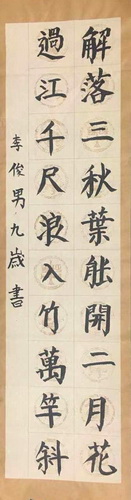 解落三秋葉能開二月花
過江千尺浪入竹萬竿斜
李俊男九歲書